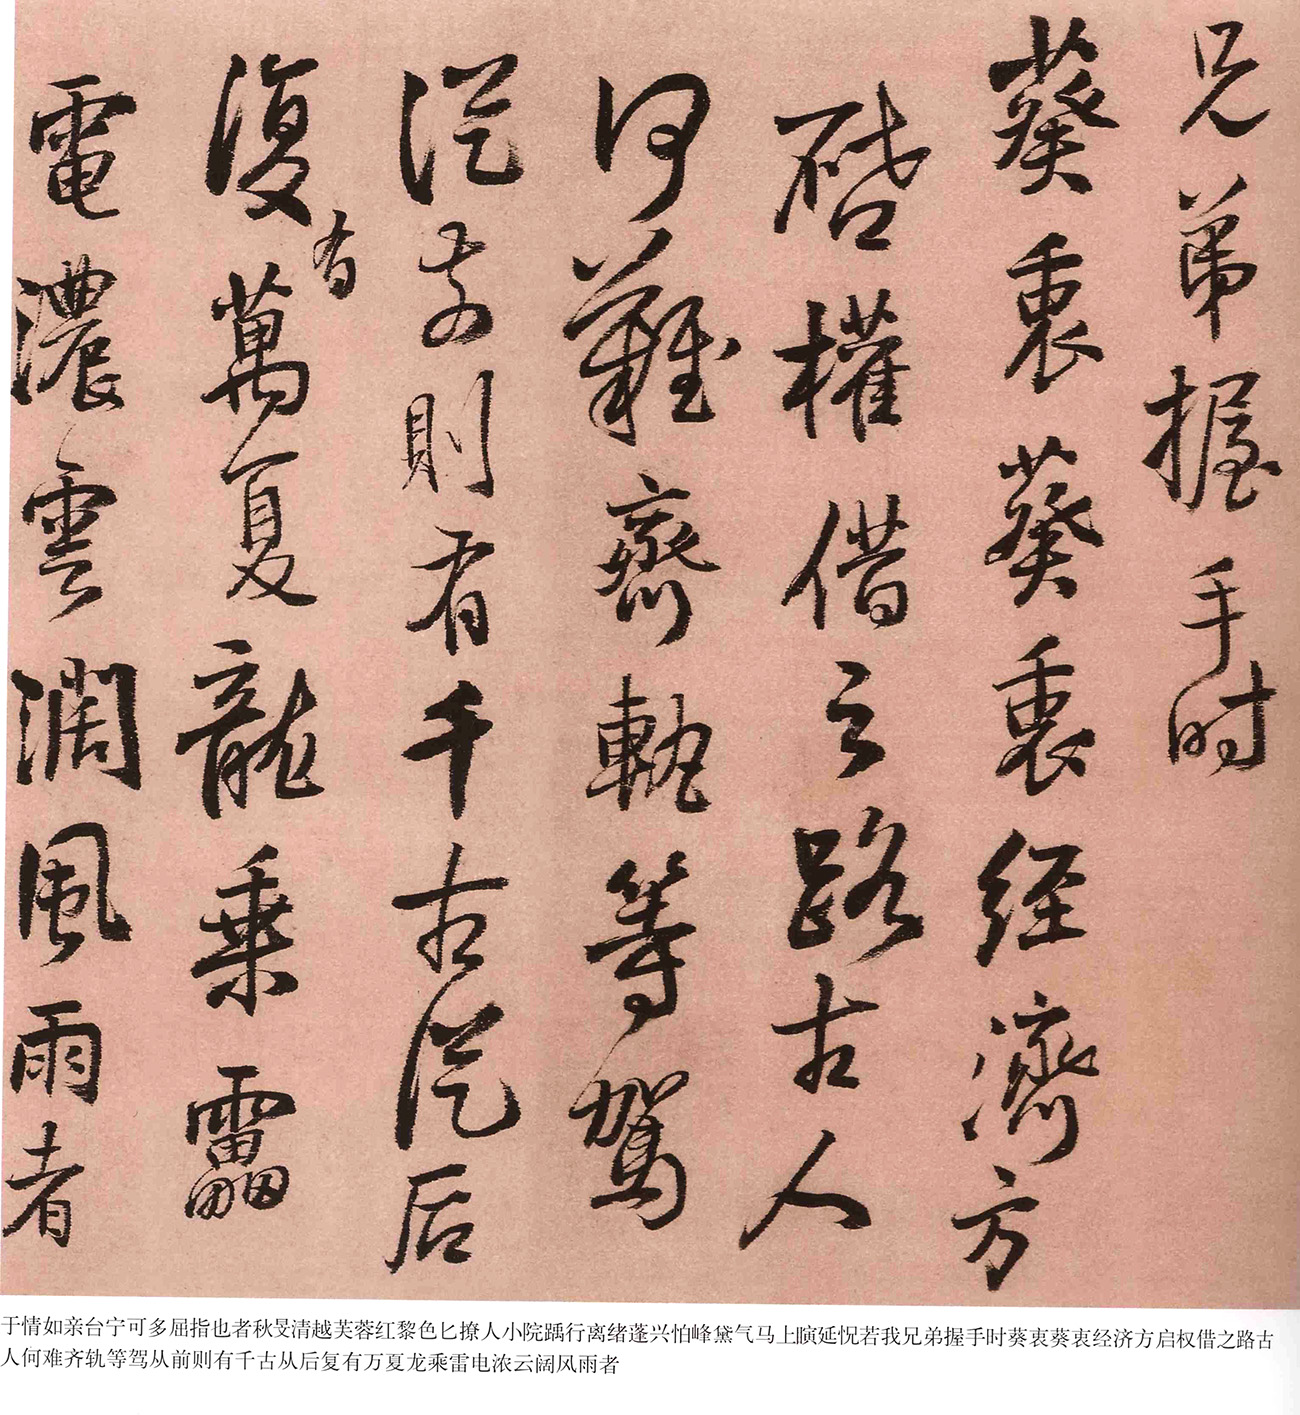 兄弟握手时
葵衷葵衷经濟方
启權借之路古人
何難齊軌等驾
从前則有千古从后
復有萬夏龍乘靁
電濃雲濶風雨者
于情如亲台宁可多屈指也者秋旻清越芙蓉红黎色匕撩人小院踽行离绪蓬兴怕峰黛气马上瞚延怳若我兄弟握手时葵衷葵衷经济方启权借之路古
人何难齐轨等驾从前则有千古从后复有万夏龙乘雷电浓云阔风雨者